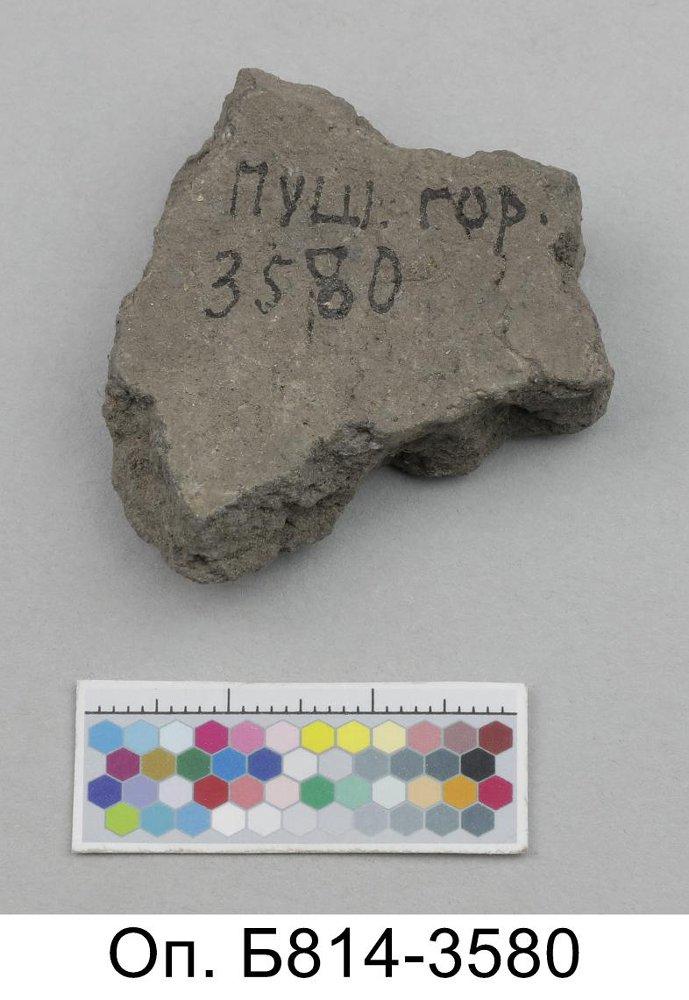 пуш. гор.
3580
Оп. Б814-3580